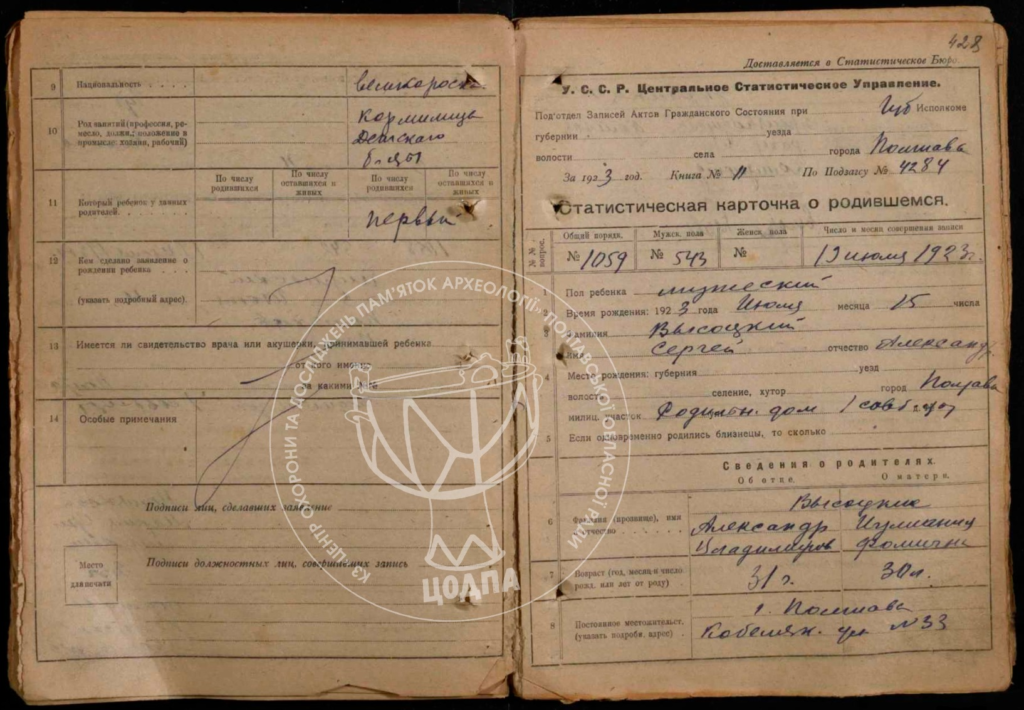 9 Национальность . . . . великоросс.
10 Род занятий (профессия, ре-
месло, должн.; положение в
промысле: хозяин, рабочий)
Кормилица
Детского
б-цы
По числу родившихся По числу оставшихся в живых По числу родившихся По числу оставшихся в живых
11 Который ребенок у данных
родителей. . . . . . . . .
первый
12 Кем сделано заявление о
рождении ребенка . . . .
(указать подробный адрес).
13 Имеется ли свидетельство врача или акушерки, принимавшей ребенка
от кого имено
за каким №
14 Особые примечания
Подписи лиц, сделавших заявление
Подписи должностных лиц, совершивших запись
Место
для печати
428
Доставляется в Статистическое Бюро.
У. С. С. Р. Центральное Статистическое Управление.
Под'отдел Записей Актов Гражданского Состояния при Губ Исполкоме
губернии уезда
волости села города Полтава
За 1923 год. Книга № 11 По Подзагсу № 4284
Статистическая карточка о родившемся.
№ № вопрос. Общий порядк. Мужск. пола Женск. пола Число и месяц совершения записи
№ 1059 № 543 № 19 июля 1923 г.
Пол ребенка мужеский
2 Время рождения: 1923 года Июля месяца 15 числа
3 Фамилия Высоцкий
Имя Сергей отчество Александр.
4 Место рождения: губерния уезд
волость селение, хутор город Полтава
милиц. участок Родильн. дом 1 совбольн
5 Если одновременно родились близнецы, то сколько
Сведения о родителях.
Об отце. О матере.
6 Фамилия (прозвище), имя
отчество . . . . . . .
Высоцкие
Александр Иулиания
Владимиров Фомични
7 Возраст (год, месяц и число
рожд. или лет от роду)
31 г. 30 л.
8 Постоянное местожительст.
(указать подробн. адрес) .
г. Полтава
Кобеляк. ул N 33
КЗ "ЦЕНТР ОХОРОНИ ТА ДОСЛІДЖЕНЬ ПАМ'ЯТОК АРХЕОЛОГІЇ" ПОЛТАВСЬКОЇ ОБЛАСНОЇ РАДИ
ЦОДПА